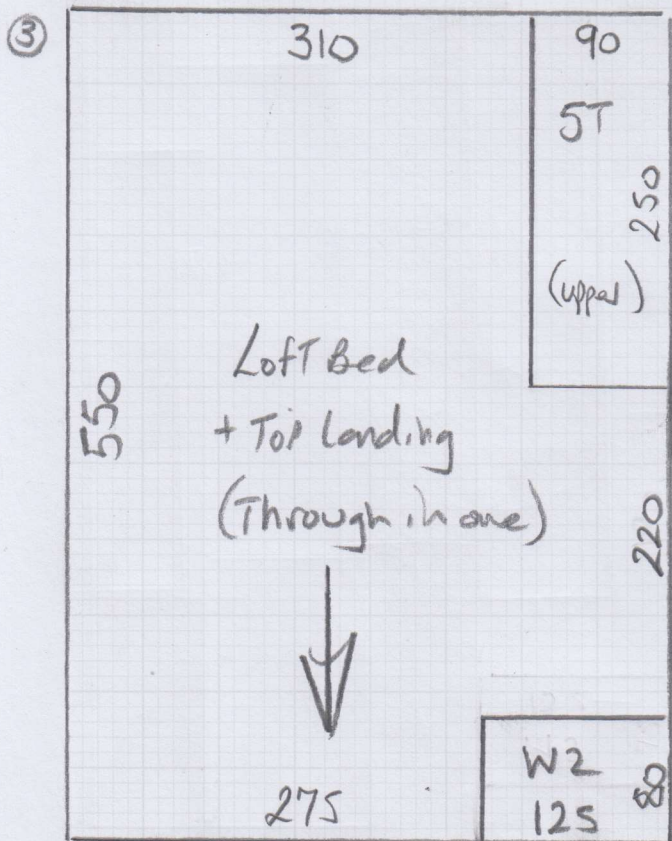 ③
310
90
5T
250
(upper)
Loft Bed
+ Top Landing
(Through in one)
550
220
W2
275
125
80